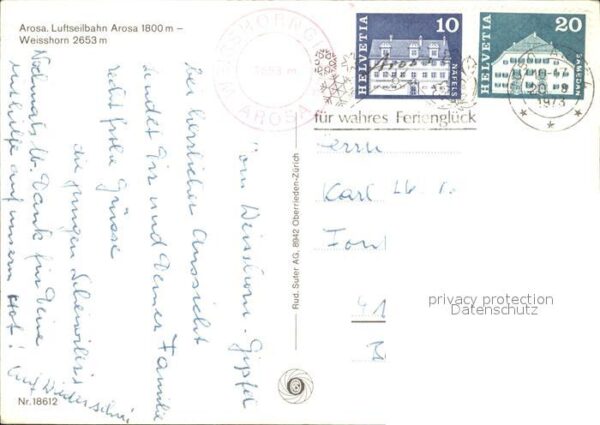 Arosa. Luftseilbahn Arosa 1800 m –
Weisshorn 2653 m
Vom Weisshorn-Gipfel
bei herrlicher Aussicht
sendet Dir und Deiner Familie
recht frohe Grüsse
die jungen
Nochmals Dank für Deine
auf unserm Hof!
Auf Wiedersehn
Nr. 18612
Rud. Suter AG, 8942 Oberrieden-Zürich
2653 m
AROSA
HELVETIA
10
NÄFELS
HELVETIA
20
SAMEDAN
Arosa
für wahres Ferienglück
1973
Herrn
Karl
41
privacy protection
Datenschutz